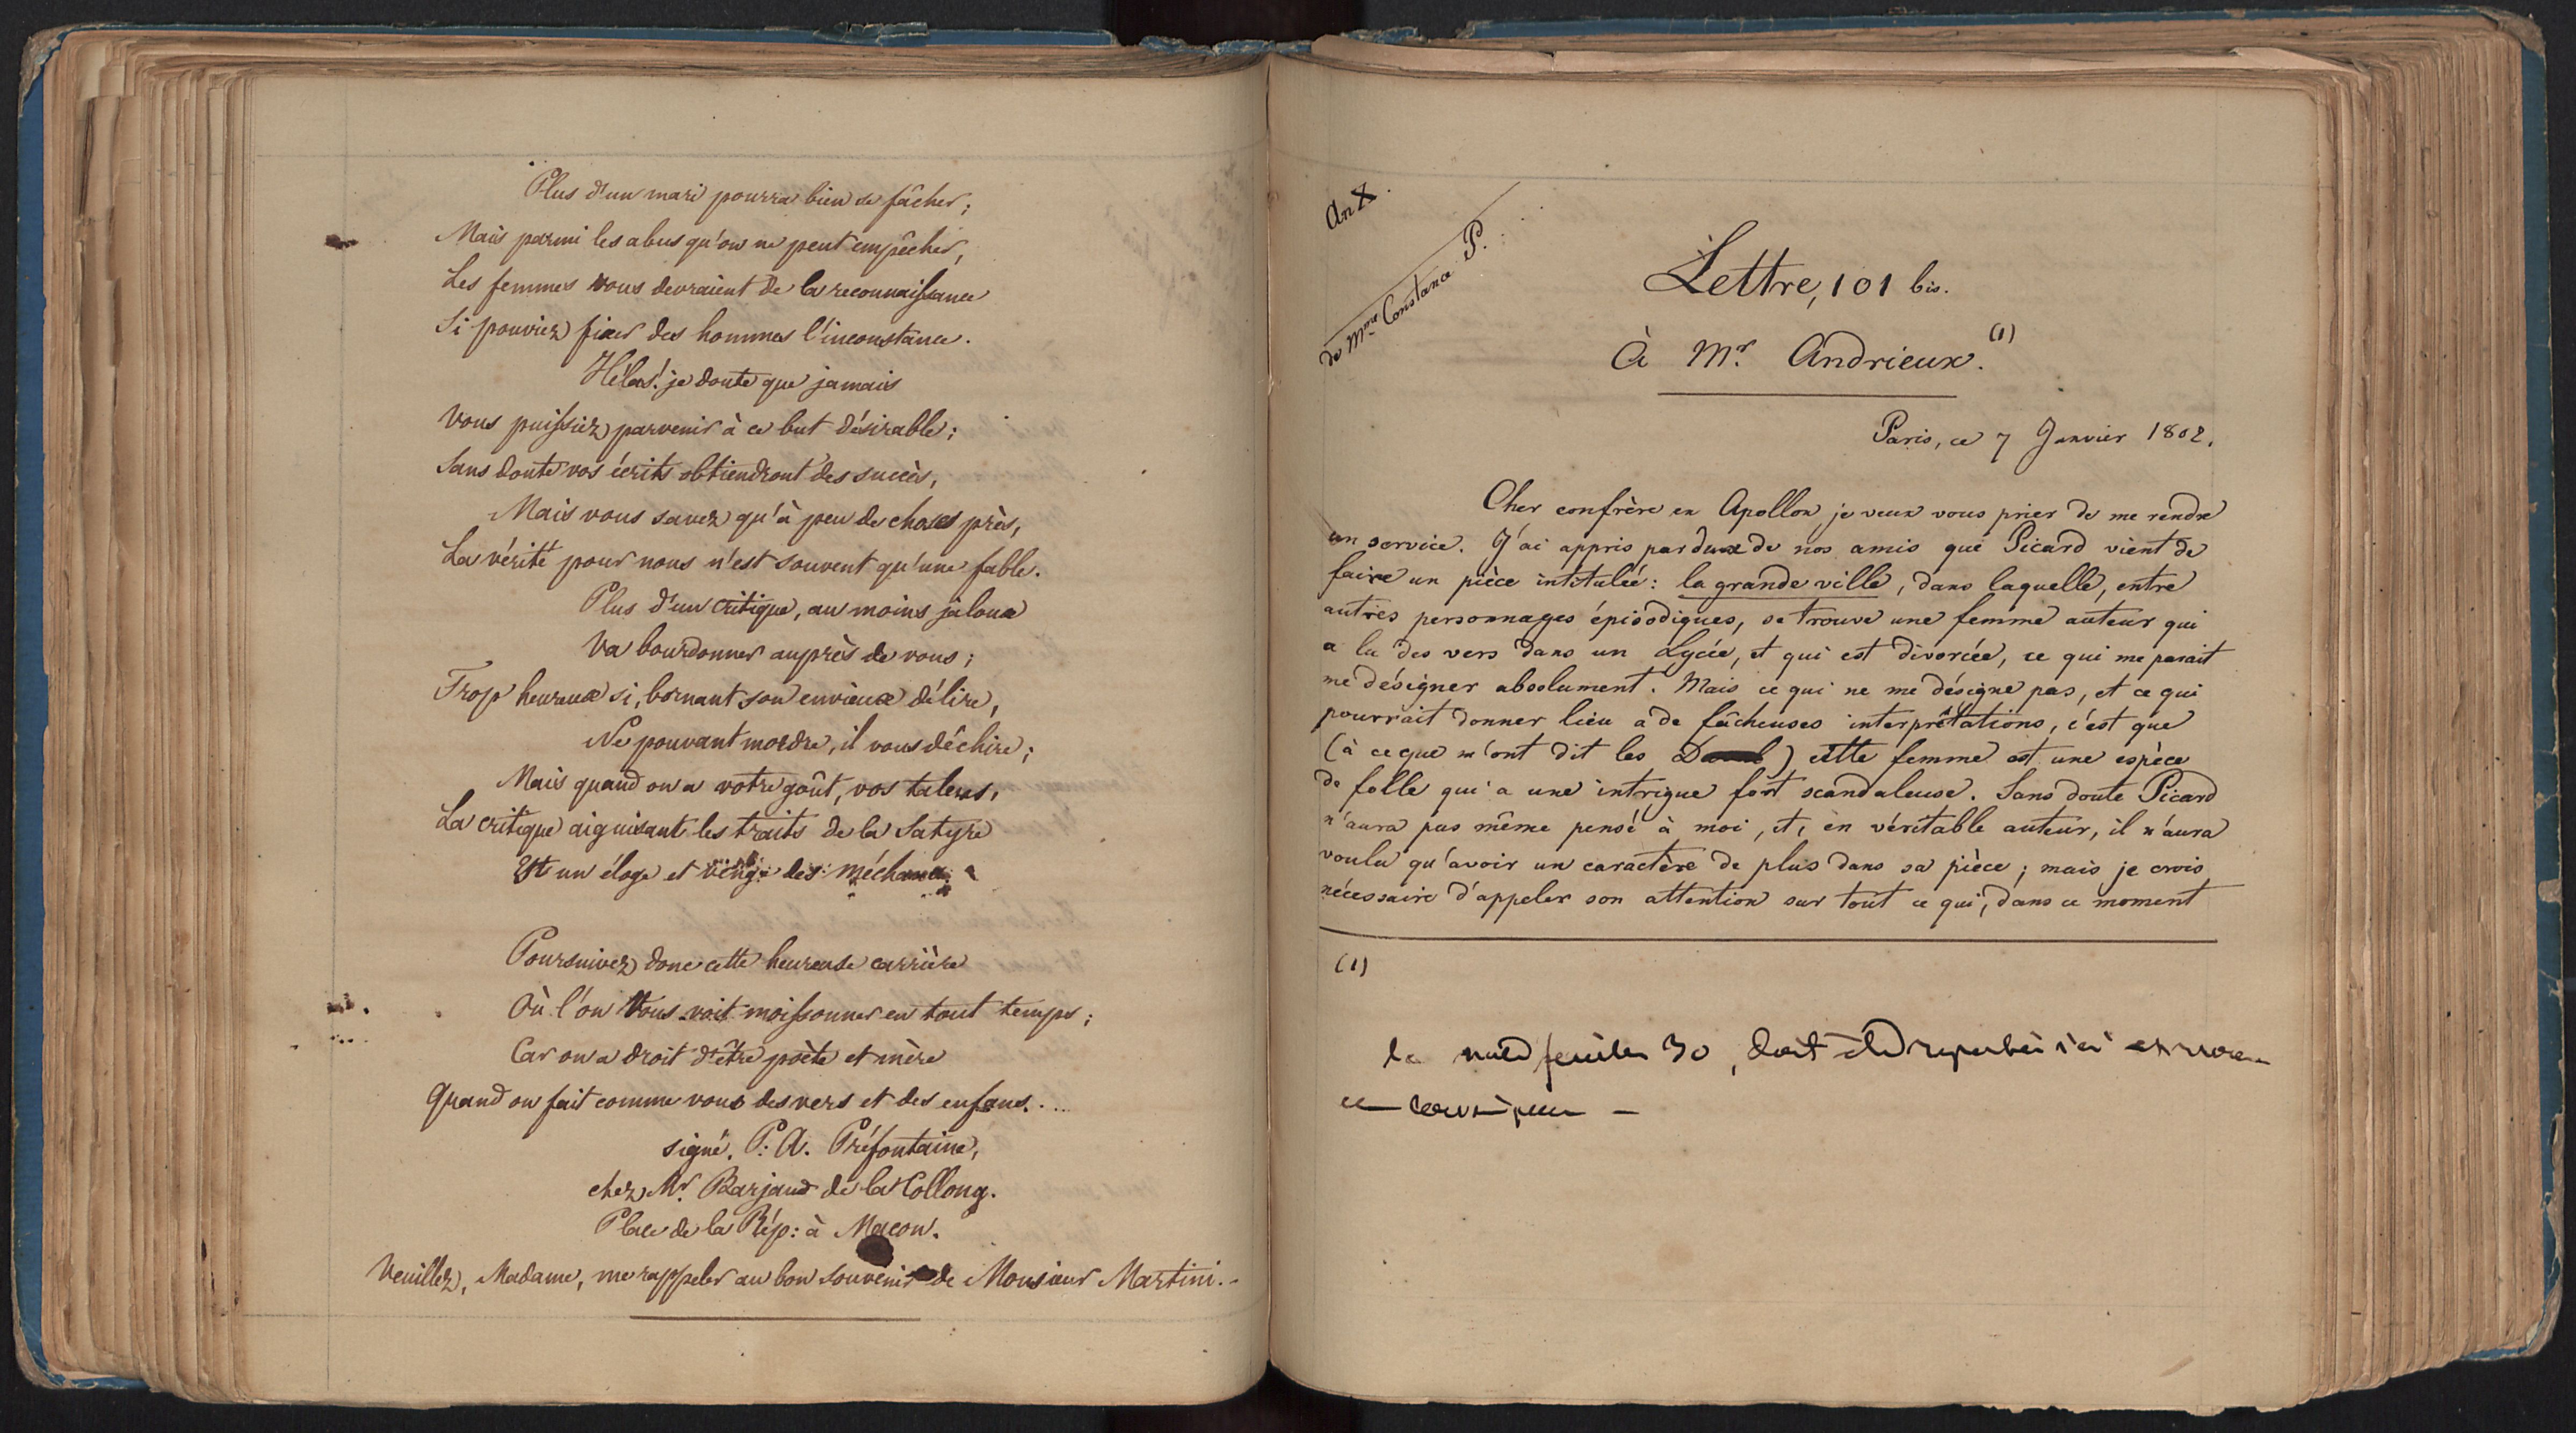 Plus d'un mari pourra bien se fâcher;
Mais parmi les abus qu'on ne peut empêcher,
Les femmes vous devraient de la reconnaissance
Si pouviez fixer des hommes l'inconstance.
Hélas! je doute que jamais
Vous puissiez parvenir à ce but désirable;
Sans doute vos écrits obtiendront des succès,
Mais vous savez qu'à peu de choses près,
La vérité pour nous n'est souvent qu'une fable.
Plus d'un critique, au moins jaloux
Va bourdonner auprès de vous;
Trop heureux si, bornant son envieux délire,
Ne pouvant mordre, il vous déchire;
Mais quand on a votre goût, vos talens,
La critique aiguisant les traits de la Satyre
Est un éloge et venge des méchans.
Poursuivez donc cette heureuse carrière
Où l'on vous voit moissonner en tout temps;
Car on a droit d'être poète et mère
Quand on fait comme vous des vers et des enfans....
signé. P: A. Préfontaine,
chez Mr. Barjaud de la Collong.
Place de la Rép: à Macon.
Veuillez, Madame, me rappeler au bon souvenir de Monsieur Martini.
An X.
de Mme Constance P.
Lettre, 101 bis.
À Mr. Andrieux. (1)
Paris, ce 7 Janvier 1802.
Cher confrère en Apollon, je veux vous prier de me rendre
un service. J'ai appris par deux de nos amis que Picard vient de
faire un pièce intitulée: la grande ville, dans laquelle, entre
autres personnages épisodiques, se trouve une femme auteur qui
a lu des vers dans un Lycée, et qui est divorcée, ce qui me parait
me désigner absolument. Mais ce qui ne me désigne pas, et ce qui
pourrait donner lieu a de fâcheuses interprétations, c'est que
(à ce que m'ont dit les) cette femme est une espèce
de folle qui a une intrigue fort scandaleuse. Sans doute Picard
n'aura pas même pensé à moi, et, en véritable auteur, il n'aura
voulu qu'avoir un caractère de plus dans sa pièce; mais je crois
nécessaire d'appeler son attention sur tout ce qui, dans ce moment
(1)
30, doit